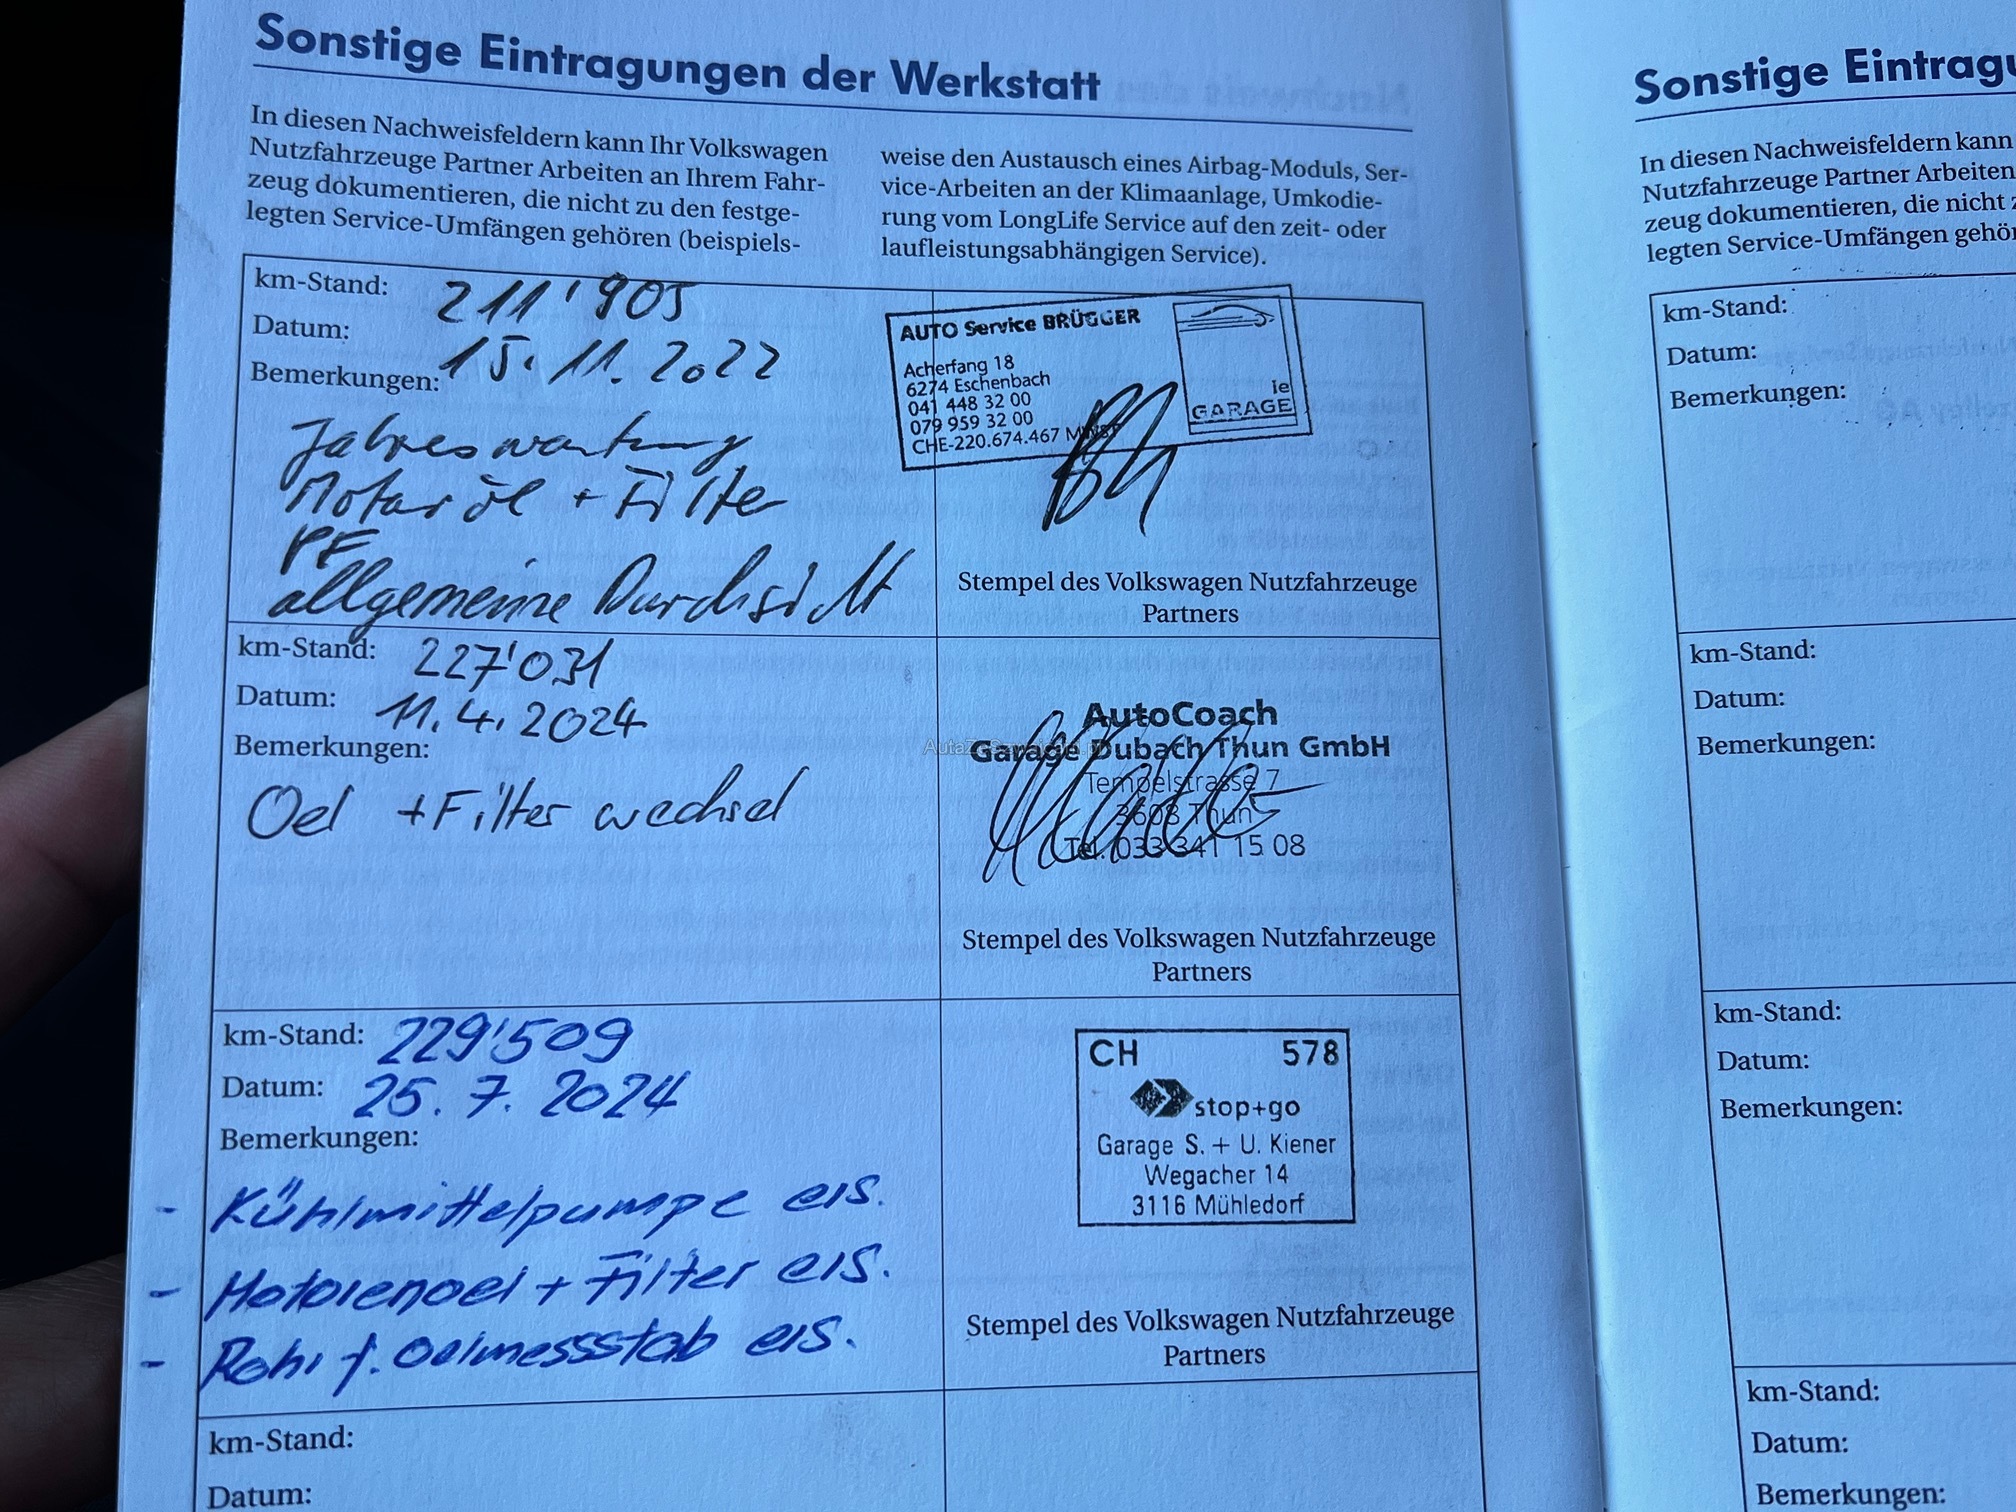 Sonstige Eintragungen der Werkstatt
In diesen Nachweisfeldern kann Ihr Volkswagen
Nutzfahrzeuge Partner Arbeiten an Ihrem Fahr-
zeug dokumentieren, die nicht zu den festge-
legten Service-Umfängen gehören (beispiels-
weise den Austausch eines Airbag-Moduls, Ser-
vice-Arbeiten an der Klimaanlage, Umkodie-
rung vom LongLife Service auf den zeit- oder
laufleistungsabhängigen Service).
km-Stand: 211'905
Datum: 15.11.2022
Bemerkungen:
Jahreswartung
Motoröl + Filter
PF
allgemeine Durchsicht
AUTO Service BRÜGGER
Acherfang 18
6274 Eschenbach
041 448 32 00
079 959 32 00
CHE-220.674.467 MWST
le
GARAGE
Stempel des Volkswagen Nutzfahrzeuge
Partners
km-Stand: 227'031
Datum: 11.4.2024
Bemerkungen:
Oel + Filter wechsel
AutoCoach
Garage Dubach Thun GmbH
Tempelstrasse 7
3608 Thun
Tel. 033 341 15 08
Stempel des Volkswagen Nutzfahrzeuge
Partners
km-Stand: 229'509
Datum: 25.7.2024
Bemerkungen:
- Kühlmittelpumpe ers.
- Motorenoel + Filter ers.
- Rohr f. Oelmessstab ers.
CH 578
stop+go
Garage S. + U. Kiener
Wegacher 14
3116 Mühledorf
Stempel des Volkswagen Nutzfahrzeuge
Partners
km-Stand:
Datum:
Sonstige Eintragu
In diesen Nachweisfeldern kann
Nutzfahrzeuge Partner Arbeiten
zeug dokumentieren, die nicht z
legten Service-Umfängen gehör
km-Stand:
Datum:
Bemerkungen:
km-Stand:
Datum:
Bemerkungen:
km-Stand:
Datum:
Bemerkungen:
km-Stand:
Datum:
Bemerkungen: